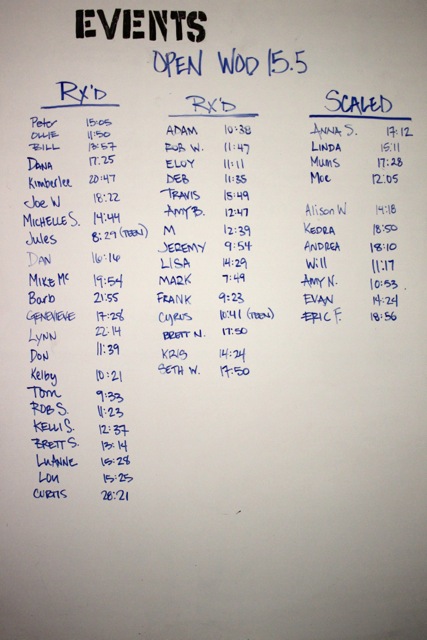 EVENTS
OPEN WOD 15.5
RX'D
Peter 15:05
OLLIE 11:50
BILL 13:57
DANA 17:25
Kimberlee 20:47
Joe W 18:22
MICHELLE S. 14:44
Jules 8:29 (TEEN)
DAN 16:16
MIKE MC 19:54
Barb 21:55
GENEVIEVE 17:28
LYNN 22:14
DON 11:39
Kelby 10:21
Tom 9:33
ROB S. 11:23
KELLI S. 12:37
BRETT S. 13:14
LUANNE 15:28
LOU 15:25
CURTIS 28:21
RX'D
ADAM 10:38
ROB W. 11:47
ELOY 11:11
DEB 11:35
TRAVIS 15:49
AMY B. 12:47
M 12:39
JEREMY 9:54
LISA 14:29
MARK 7:49
FRANK 9:23
CYRUS 10:41 (TEEN)
BRETT N. 17:50
KRIS 14:24
SETH W. 17:50
SCALED
ANNA S. 17:12
LINDA 15:11
Mums 17:28
Moe 12:05
Alison W 14:18
KEDRA 18:50
ANDREA 18:10
Will 11:17
AMY N. 10:53
EVAN 14:24
ERIC F. 18:56